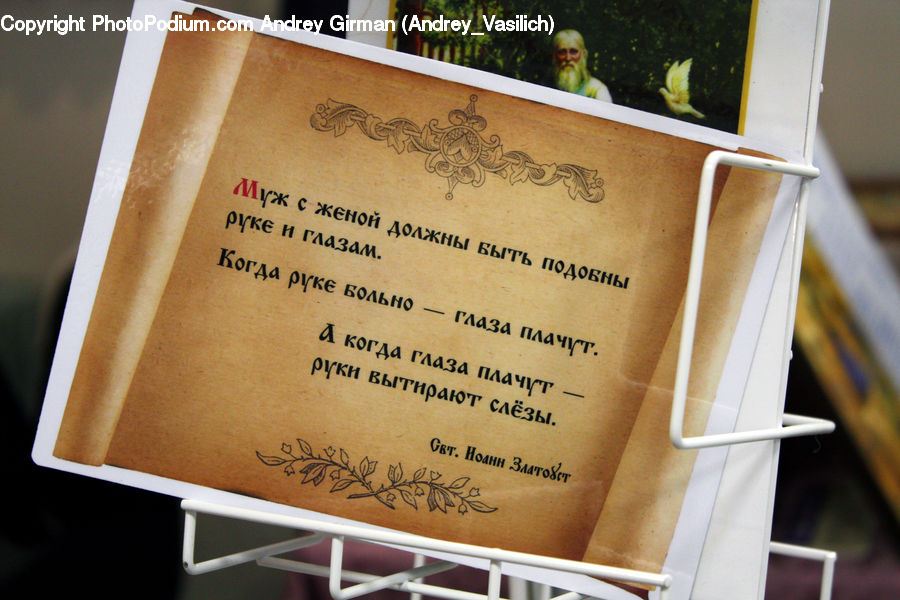 Copyright PhotoPodium.com Andrey Girman (Andrey_Vasilich)
Муж с женой должны быть подобны
руке и глазам.
Когда руке больно — глаза плачут.
А когда глаза плачут —
руки вытирают слёзы.
Свт. Иоанн Златоуст